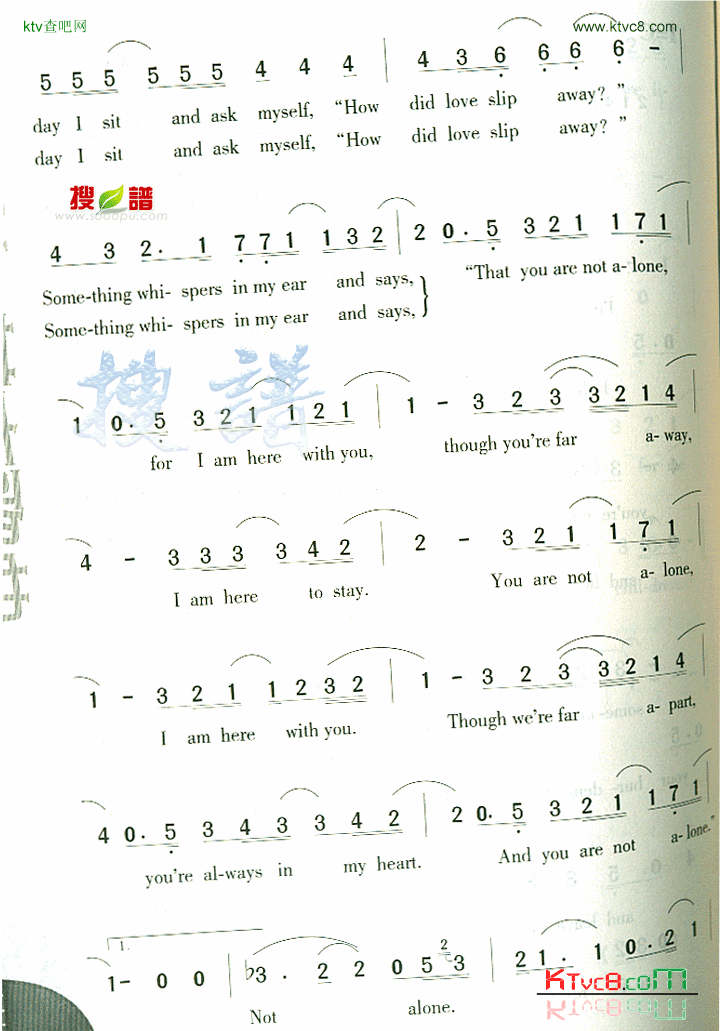 ktv查吧网 www.ktvc8.com
5 5 5 5 5 5 4 4 4 | 4 3 6 6 6 6 - |
day I sit and ask myself, “How did love slip away? ”
day I sit and ask myself, “How did love slip away? ”
搜谱
www.sooopu.com
4 3 2 · 1 7 7 1 1 3 2 | 2 0 · 5 3 2 1 1 7 1
Some-thing whi- spers in my ear and says, “That you are not a- lone,
Some-thing whi- spers in my ear and says,
搜 譜
1 0 · 5 3 2 1 1 2 1 | 1 - 3 2 3 3 2 1 4
for I am here with you, though you're far a- way,
4 - 3 3 3 3 4 2 | 2 - 3 2 1 1 7 1
I am here to stay. You are not a- lone,
1 - 3 2 1 1 2 3 2 | 1 - 3 2 3 3 2 1 4
I am here with you. Though we're far a- part,
4 0 · 5 3 4 3 3 4 2 | 2 0 · 5 3 2 1 1 7 1
you're al-ways in my heart. And you are not a- lone.”
1.
1 - 0 0 | ♭3 · 2 2 0 5 2 3 | 2 1 · 1 0 · 2 1
Not alone.
KTvc8.com